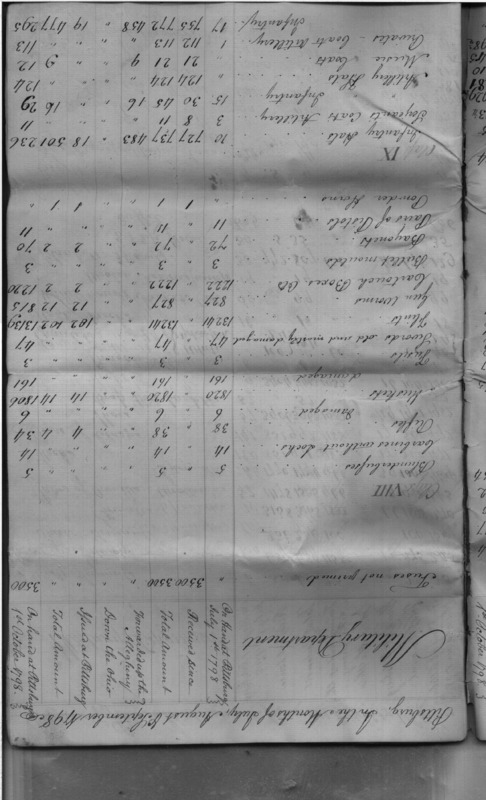 Pittsburg, In the Months of July, August & September 1798
Military Department
On hand at Pittsburg July 1st 1798
Received since
Total Amount
Forwarded up the Allegheny
Down the Ohio
Issued at Pittsburg
Total Amount
On hand at Pittsburg 1st October 1798
Fuses not primed " 3500 3500 " " " " 3500
VIII
Blunderbusses 5 " 5 " " " " 5
Carbines without Locks 14 " 14 " " " " 14
Rifles 38 " 38 " " 4 4 34
damaged 6 " 6 " " " " 6
Muskets 1820 " 1820 " " 14 14 1806
damaged 161 " 161 " " " " 161
Fusils 3 " 3 " " " " 3
Swords old and mostly damaged 47 " 47 " " " " 47
Flints 13241 " 13241 " " 102 102 13139
Gun Worms 827 " 827 " " 12 12 815
Cartouch Boxes 1222 " 1222 " " 2 2 1220
Bullet moulds 3 " 3 " " " " 3
Bayonets 72 " 72 " " 2 2 70
Pairs of Pistols 11 " 11 " " " " 11
Powder Horns 1 " 1 " " 1 1 "
IX
Infantry Hats 10 727 737 483 " 18 501 236
Sergeants Coats Artillery 3 8 11 " " " " 11
" " Infantry 15 30 45 16 " " 16 29
Artillery Hats " 124 124 " " " " 124
Music Coats " 21 21 9 " " 9 12
Privates Coats Artillery 1 112 113 " " " " 113
Infantry 17 755 772 458 " 19 477 295